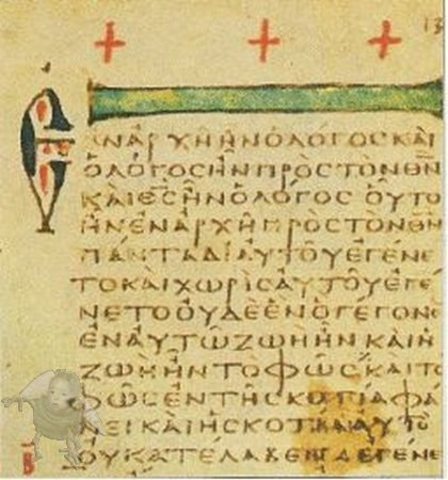 ЄΝΑΡΧΗΗΝΟΛΟΓΟϹΚΑΙ
ΟΛΟΓΟϹΗΝΠΡΟϹΤΟΝΘΝ
ΚΑΙΘϹΗΝΟΛΟΓΟϹΟΥΤΟ
ΗΝЄΝΑΡΧΗΠΡΟϹΤΟΝΘΝ
ΠΑΝΤΑΔΙΑΥΤΟΥЄΓЄΝЄ
ΤΟΚΑΙΧΩΡΙϹΑΥΤΟΥЄΓЄ
ΝЄΤΟΟΥΔЄЄΝΟΓЄΓΟΝЄ
ЄΝΑΥΤΩΖΩΗΗΝΚΑΙΗ
ΖΩΗΗΝΤΟΦΩϹΚΑΙΤΟ
ΦΩϹЄΝΤΗϹΚΟΤΙΑΦΑ
ΝЄΙΚΑΙΗϹΚΟΤΙΑΑΥΤΟ
ΟΥΚΑΤЄΛΑΒЄΝ